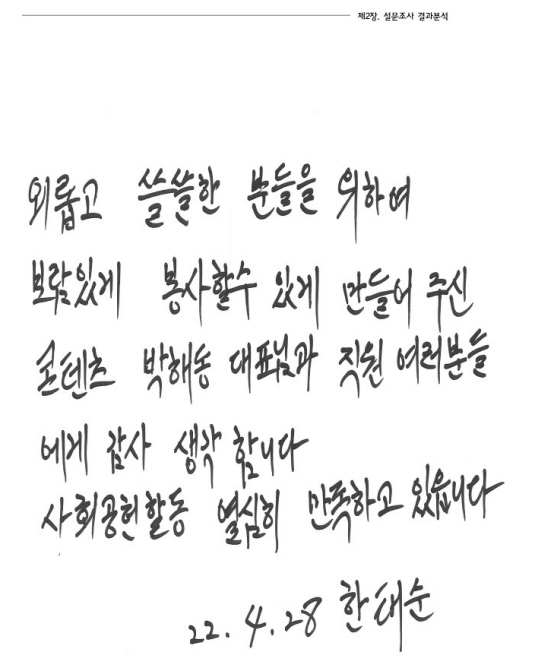 제2장. 설문조사 결과분석
외롭고 쓸쓸한 분들을 위하여
보람있게 봉사할수 있게 만들어 주신
콘텐츠 박해동 대표님과 직원 여러분들
에게 감사 생각 합니다
사회공헌활동 열심히 만족하고 있읍니다
22. 4. 28 한태순